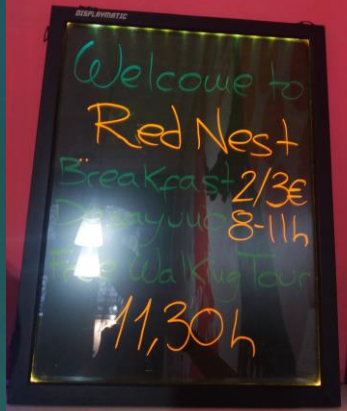 DISPLAYMATIC
Welcome to
Red Nest
Breakfast 2/3€
Desayuno 8-11h
Free Walking Tour
11,30h